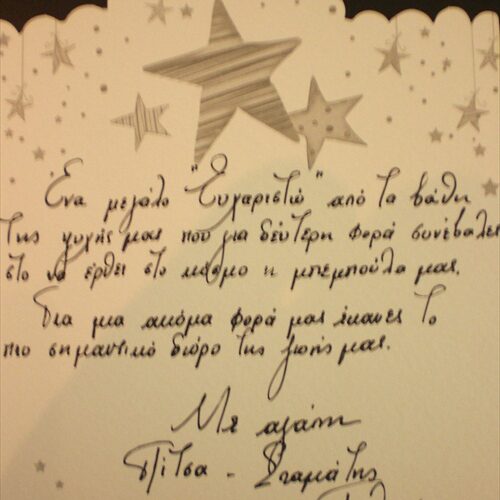 Ενα μεγάλο "Ευχαριστώ" από τα βάθη
της ψυχής μας που για δεύτερη φορά συνέβαλες
στο να έρθει στο κόσμο η μπεμπούλα μας.
Για μια ακόμα φορά μας έκανες το
πιο σημαντικό δώρο της ζωής μας.
Με αγάπη
Πίτσα - Σταμάτης